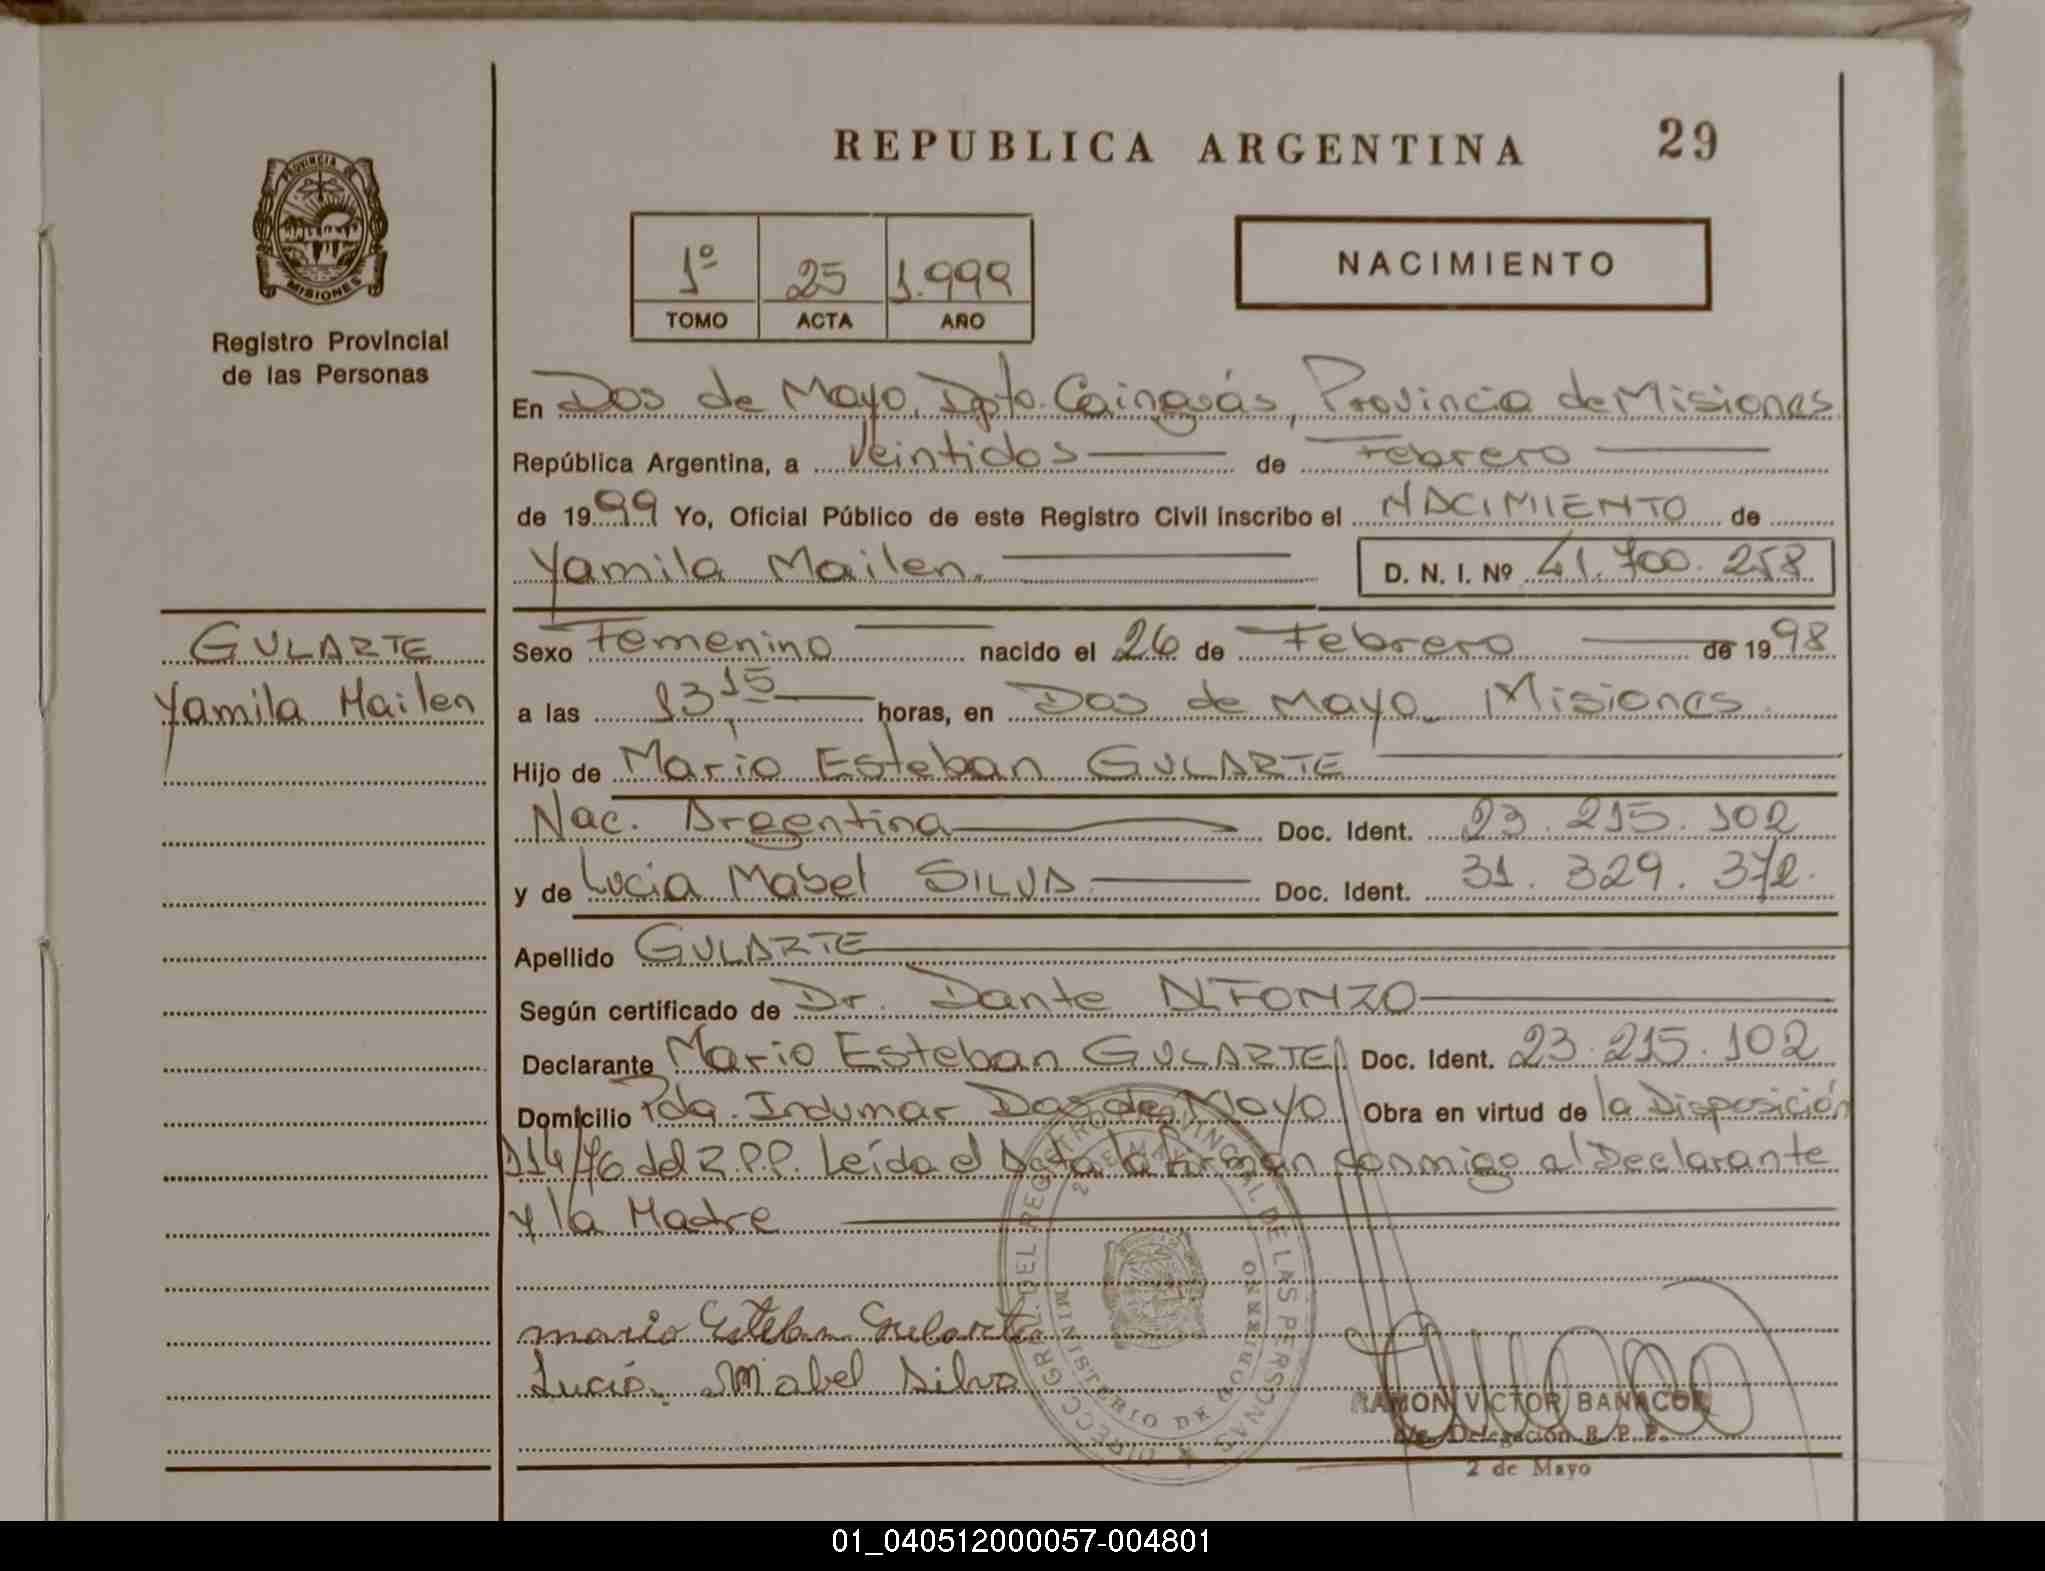 REPUBLICA ARGENTINA 29
PROVINCIA DE
MISIONES
Registro Provincial
de las Personas
1º 25 1.999
TOMO ACTA AÑO
NACIMIENTO
En Dos de Mayo, Dpto. Cainguás, Provincia de Misiones
República Argentina, a veintidos de Febrero
de 1999 Yo, Oficial Público de este Registro Civil inscribo el NACIMIENTO de
Yamila Mailen. D. N. I. Nº 41.700.258
GULARTE
Yamila Mailen
Sexo Femenino nacido el 26 de Febrero de 1998
a las 13,15 horas, en Dos de Mayo - Misiones
Hijo de Mario Esteban GULARTE
Nac. Argentina Doc. Ident. 23.215.102
y de Lucia Mabel SILVA Doc. Ident. 31.329.372.
Apellido GULARTE
Según certificado de Dr. Dante ALFONZO
Declarante Mario Esteban GULARTE Doc. Ident. 23.215.102
Domicilio Pda. Indumar Dos de Mayo Obra en virtud de la Disposición
114/76 del R.P.P. Leída el Acta la firman conmigo el Declarante
y la Madre
mario Esteban Gularte
Lucia Mabel Silva
DIRECC. GRAL. DEL REGISTRO PROVINCIAL DE LAS PERSONAS
MINISTERIO DE GOBIERNO
RAMON VICTOR BANACOR
Delegación R. P. P.
2 de Mayo
01_040512000057-004801